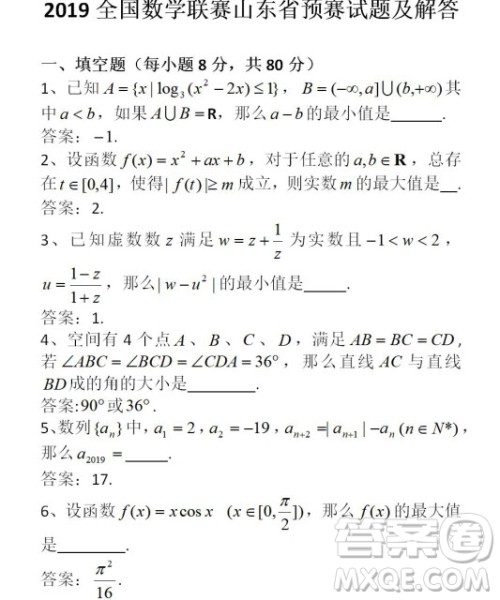 2019 全国数学联赛山东省预赛试题及解答
一、填空题（每小题 8 分，共 80 分）
1、已知 A = {x | log₃(x² − 2x) ≤ 1}，B = (−∞, a] ⋃ (b, +∞) 其
中 a < b，如果 A ⋃ B = R，那么 a − b 的最小值是______.
答案：−1.
2、设函数 f(x) = x² + ax + b，对于任意的 a, b ∈ R，总存
在 t ∈ [0,4]，使得 | f(t) | ≥ m 成立，则实数 m 的最大值是__.
答案：2.
3、已知虚数数 z 满足 w = z + 1/z 为实数且 −1 < w < 2，
u = (1 − z)/(1 + z)，那么 | w − u² | 的最小值是______.
答案：1.
4、空间有 4 个点 A、B、C、D，满足 AB = BC = CD，
若 ∠ABC = ∠BCD = ∠CDA = 36°，那么直线 AC 与直线
BD 成的角的大小是________.
答案:90° 或 36°.
5、数列 {aₙ} 中，a₁ = 2，a₂ = −19，aₙ₊₂ = | aₙ₊₁ | − aₙ (n ∈ N*)，
那么 a₂₀₁₉ = ________.
答案：17.
6、设函数 f(x) = x cos x (x ∈ [0, π/2])，那么 f(x) 的最大值
是________.
答案：π²/16.